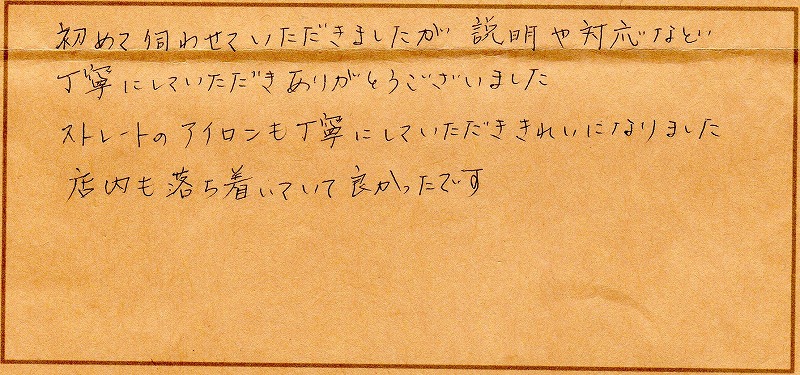 初めて伺わせていただきましたが 説明や対応など
丁寧にしていただきありがとうございました
ストレートのアイロンも丁寧にしていただききれいになりました
店内も落ち着いていて良かったです